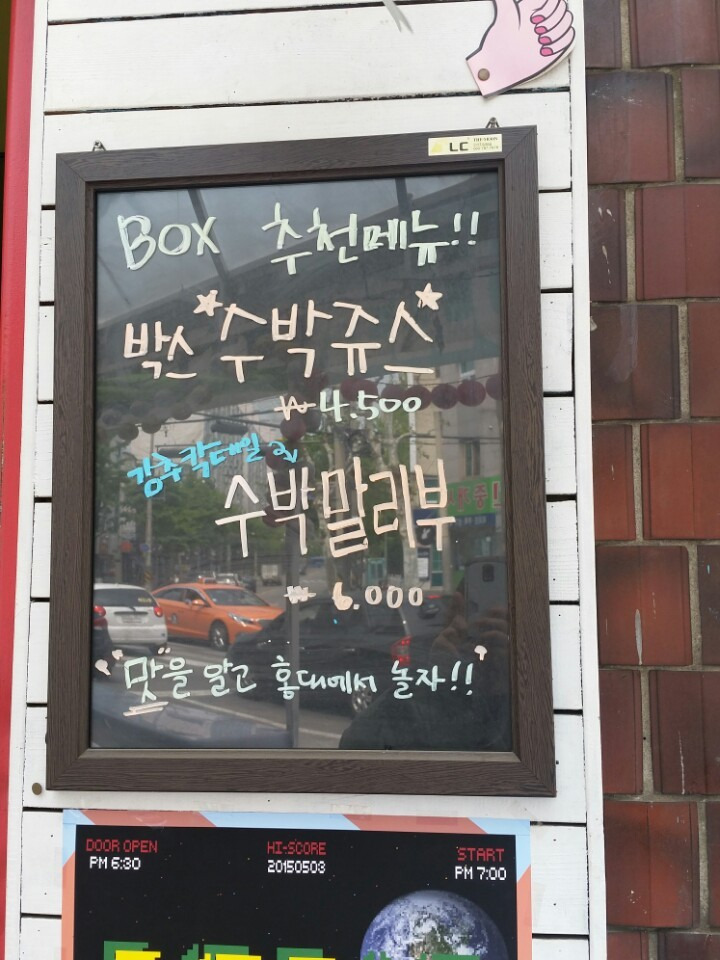 LC
BOX 추천메뉴!!
박스 수박쥬스
₩4.500
강추칵테일
수박말리부
₩ 6.000
"맛"을 알고 홍대에서 놀자!!
DOOR OPEN HI-SCORE START
PM 6:30 20150503 PM 7:00